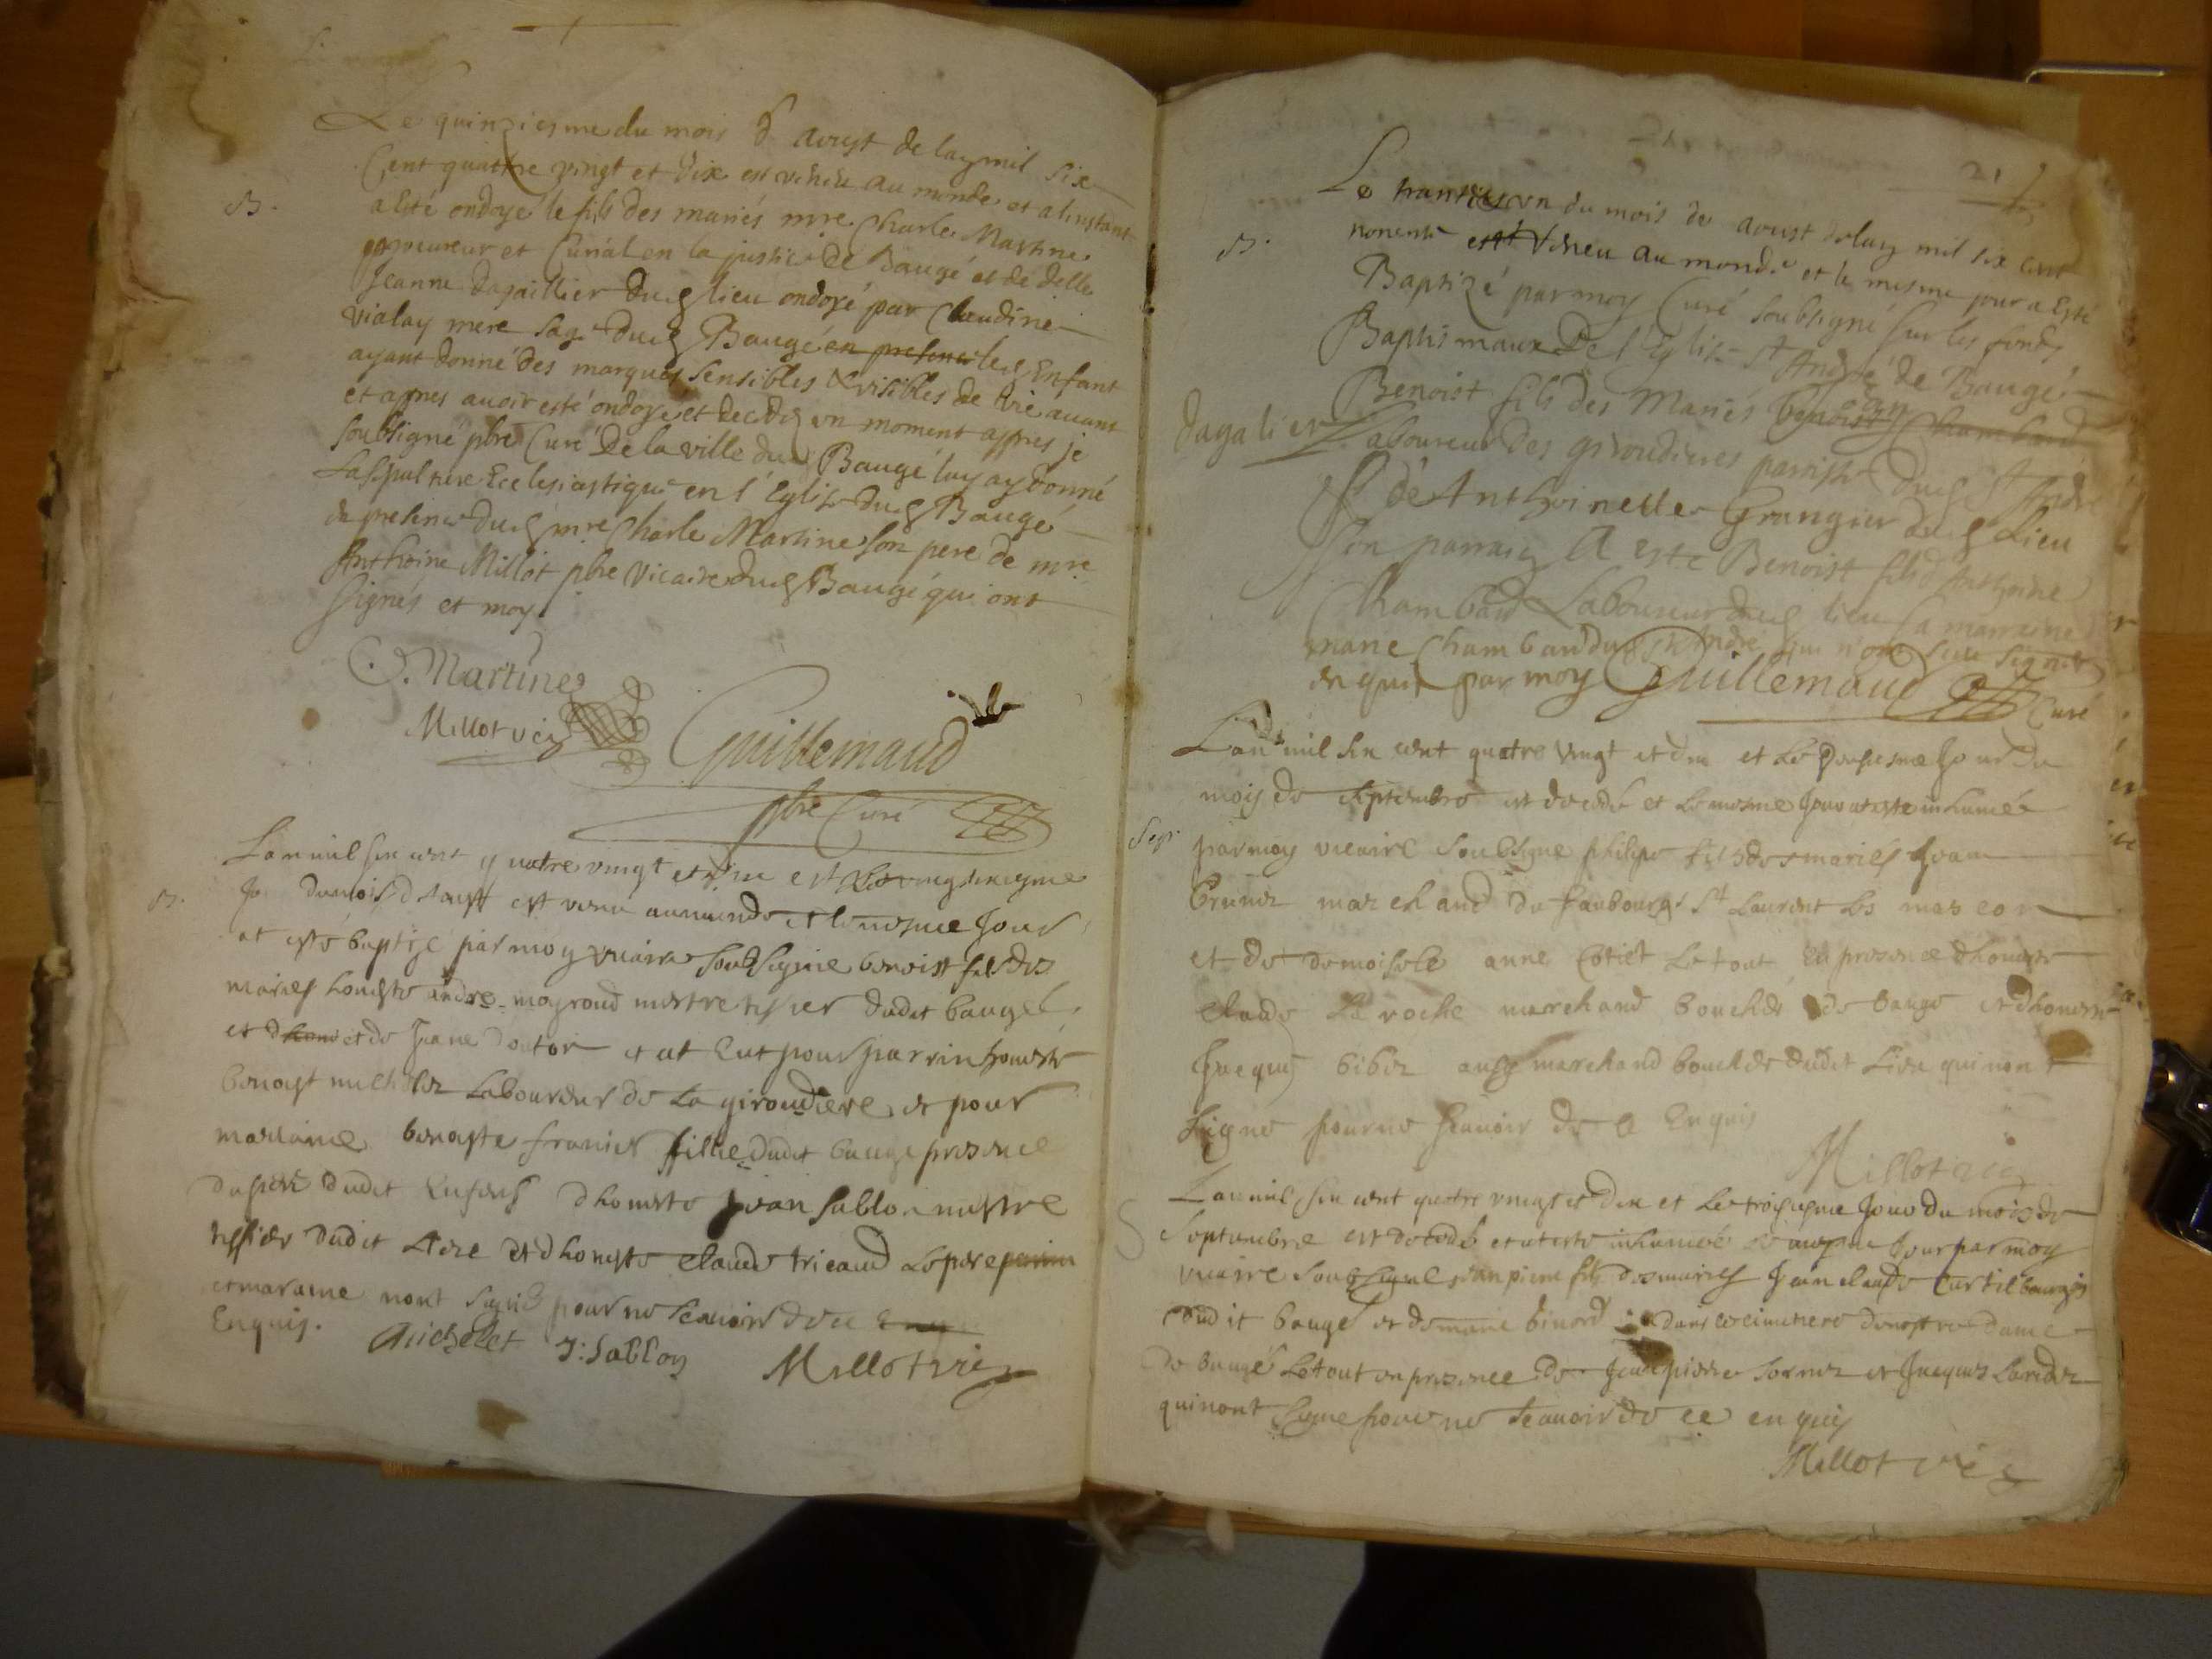 Le quinziesme du mois d'Avust de lay mil six
Cent quattre vingt et dix est veneu au monde et a linstant
B.
a esté ondoyé le fils des mariés mre Charle Martine
procureur et Curial en la justice de Baugé et de delle
Jeanne dagaillier dud lieu ondoyé par Claudine
vialay mere sage dud Baugé en presence led Enfant
ayant donné des marques sensibles & visibles de vie avant
et apres avoir esté ondoyé et deceddé un moment appres je
soubsigné pbre Curé de la ville dud Baugé luy ay donné
la sepulture Ecclesiastique en l'Eglise dud Baugé
en presence dud mre Charle Martine son pere de mre
Anthoine Millot pbre vicaire dud Baugé qui ont
signés et moy
C. Martine
Millot vic
Guillemaud
pbre Curé
Lan mil six cent quatre vingt et dix et le vingt
B.
Jo du mois d Aust est venu au monde et le mesme Jour
at esté baptizé par moy vicaire soubsigne benoist fils des
mariés honeste andre moyroud mestre tissier dudit baugé
et d hone et de Jeane et at eut pour parrin honeste
benoist michelet Laboureur de La giroudiere et pour
maraine benoiste fille dudit bauge presence
du pere dudit Enfens d honeste Jean sablon mestre
tissier dudit Lieu et d honeste claude tricaud Le pere parin
et maraine nont signé pour ne scavoir de ce
Enquis.
Michelet J: Sablon Millot vic
21
Le trantiesun du mois de Avust delay mil six cent
B.
nonente est Veneu au monde et le mesme jour a Esté
Baptizé par moy Curé soubsigné sur les fonds
Baptismaux de l'Eglise st André de Baugé
Benoist fils des Mariés Benoist Chamband
dagalier
Laboureur des giroudieres parrisse dud st André
& de Anthoinette Grangier dud Lieu
Son parrain A esté Benoist fils d Anthoine
Chamband Laboureur dud lieu sa marreine
marie Chamband dud st André qui n'ont sceu signer
de quis par moy Guillemaud Curé
Lan mil six cent quatre vingt et dix et Le Jour du
mois de septembre est decedé et Le mesme Jour at este inhumé
Sep.
par moy vicaire soubsigne philipe fils des mariés Jean
brunet marchand du faubourg st Laurent les mascon
et de demoiselle anne Cotiet Le tout En presence d honeste
claude La roche marchand boucher de bauge et d honeste
Jacque bibet aussy marchand boucher dudit Lieu qui nont
signe pour ne scavoir de ce Enquis
Millot vic
Lan mil six cent quatre vingt et dix et Le troisiesme Jour du mois de
S
Septembre est decedé et at esté inhumé Le mesme Jour par moy
vicaire soubsigné Jean pierre fils des mariés Jean claude Curtil
dudit baugé et de marie binard dans le cimetiere de nostre dame
de baugé Le tout en presence de Jean pierre et Jacques
qui nont signe pour ne scavoir de ce enquis
Millot vic